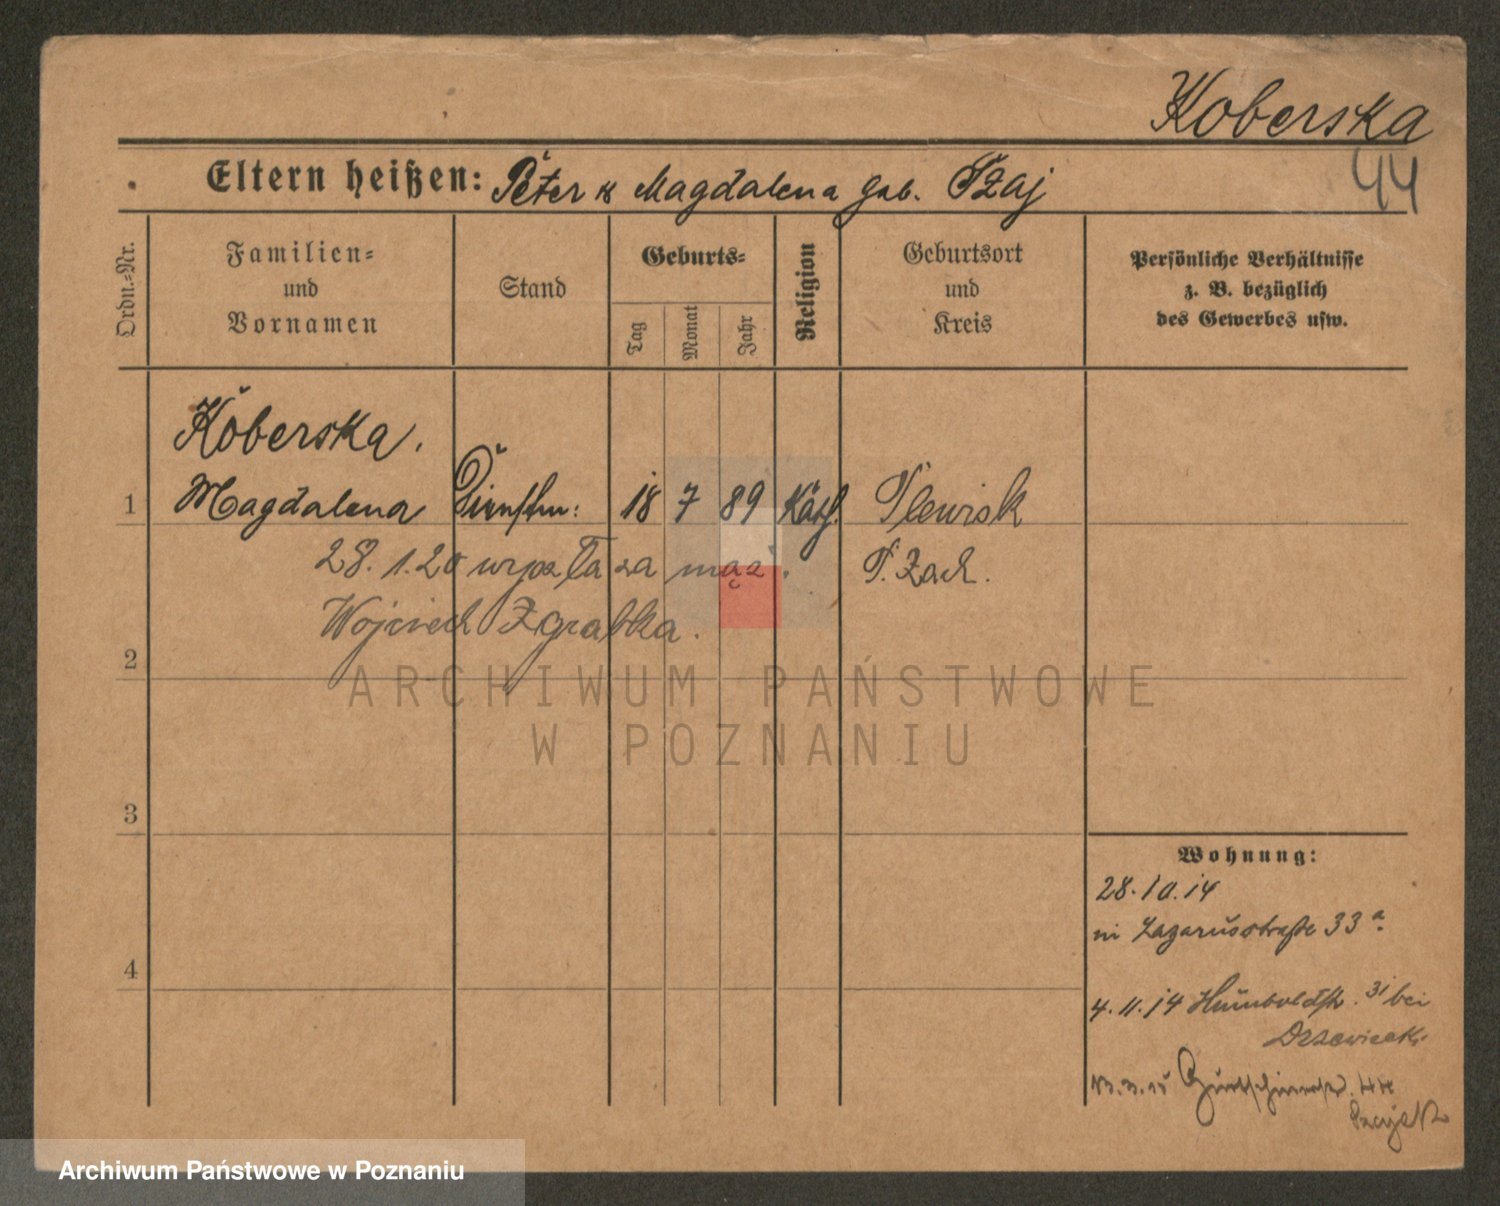 Koberska
44
Eltern heißen: Peter u Magdalena geb. Tzaj
Ordn.-Nr.
Familien-
und
Vornamen
Stand
Geburts-
Tag
Monat
Jahr
Religion
Geburtsort
und
Kreis
Persönliche Verhältnisse
z. B. bezüglich
des Gewerbes usw.
Koberska.
1 Magdalena Dienstm: 18 7 89 Kath. Plewisk
28.1.20 wyszła za mąż. P. Zach.
Wojciech Zgrabka.
2
3
4
Wohnung:
28.10.14
in Lazarusstraße 33a.
4.11.14 Humboldtstr. 31 bei
Drzewiecki
44
ARCHIWUM PAŃSTWOWE
W POZNANIU
Archiwum Państwowe w Poznaniu